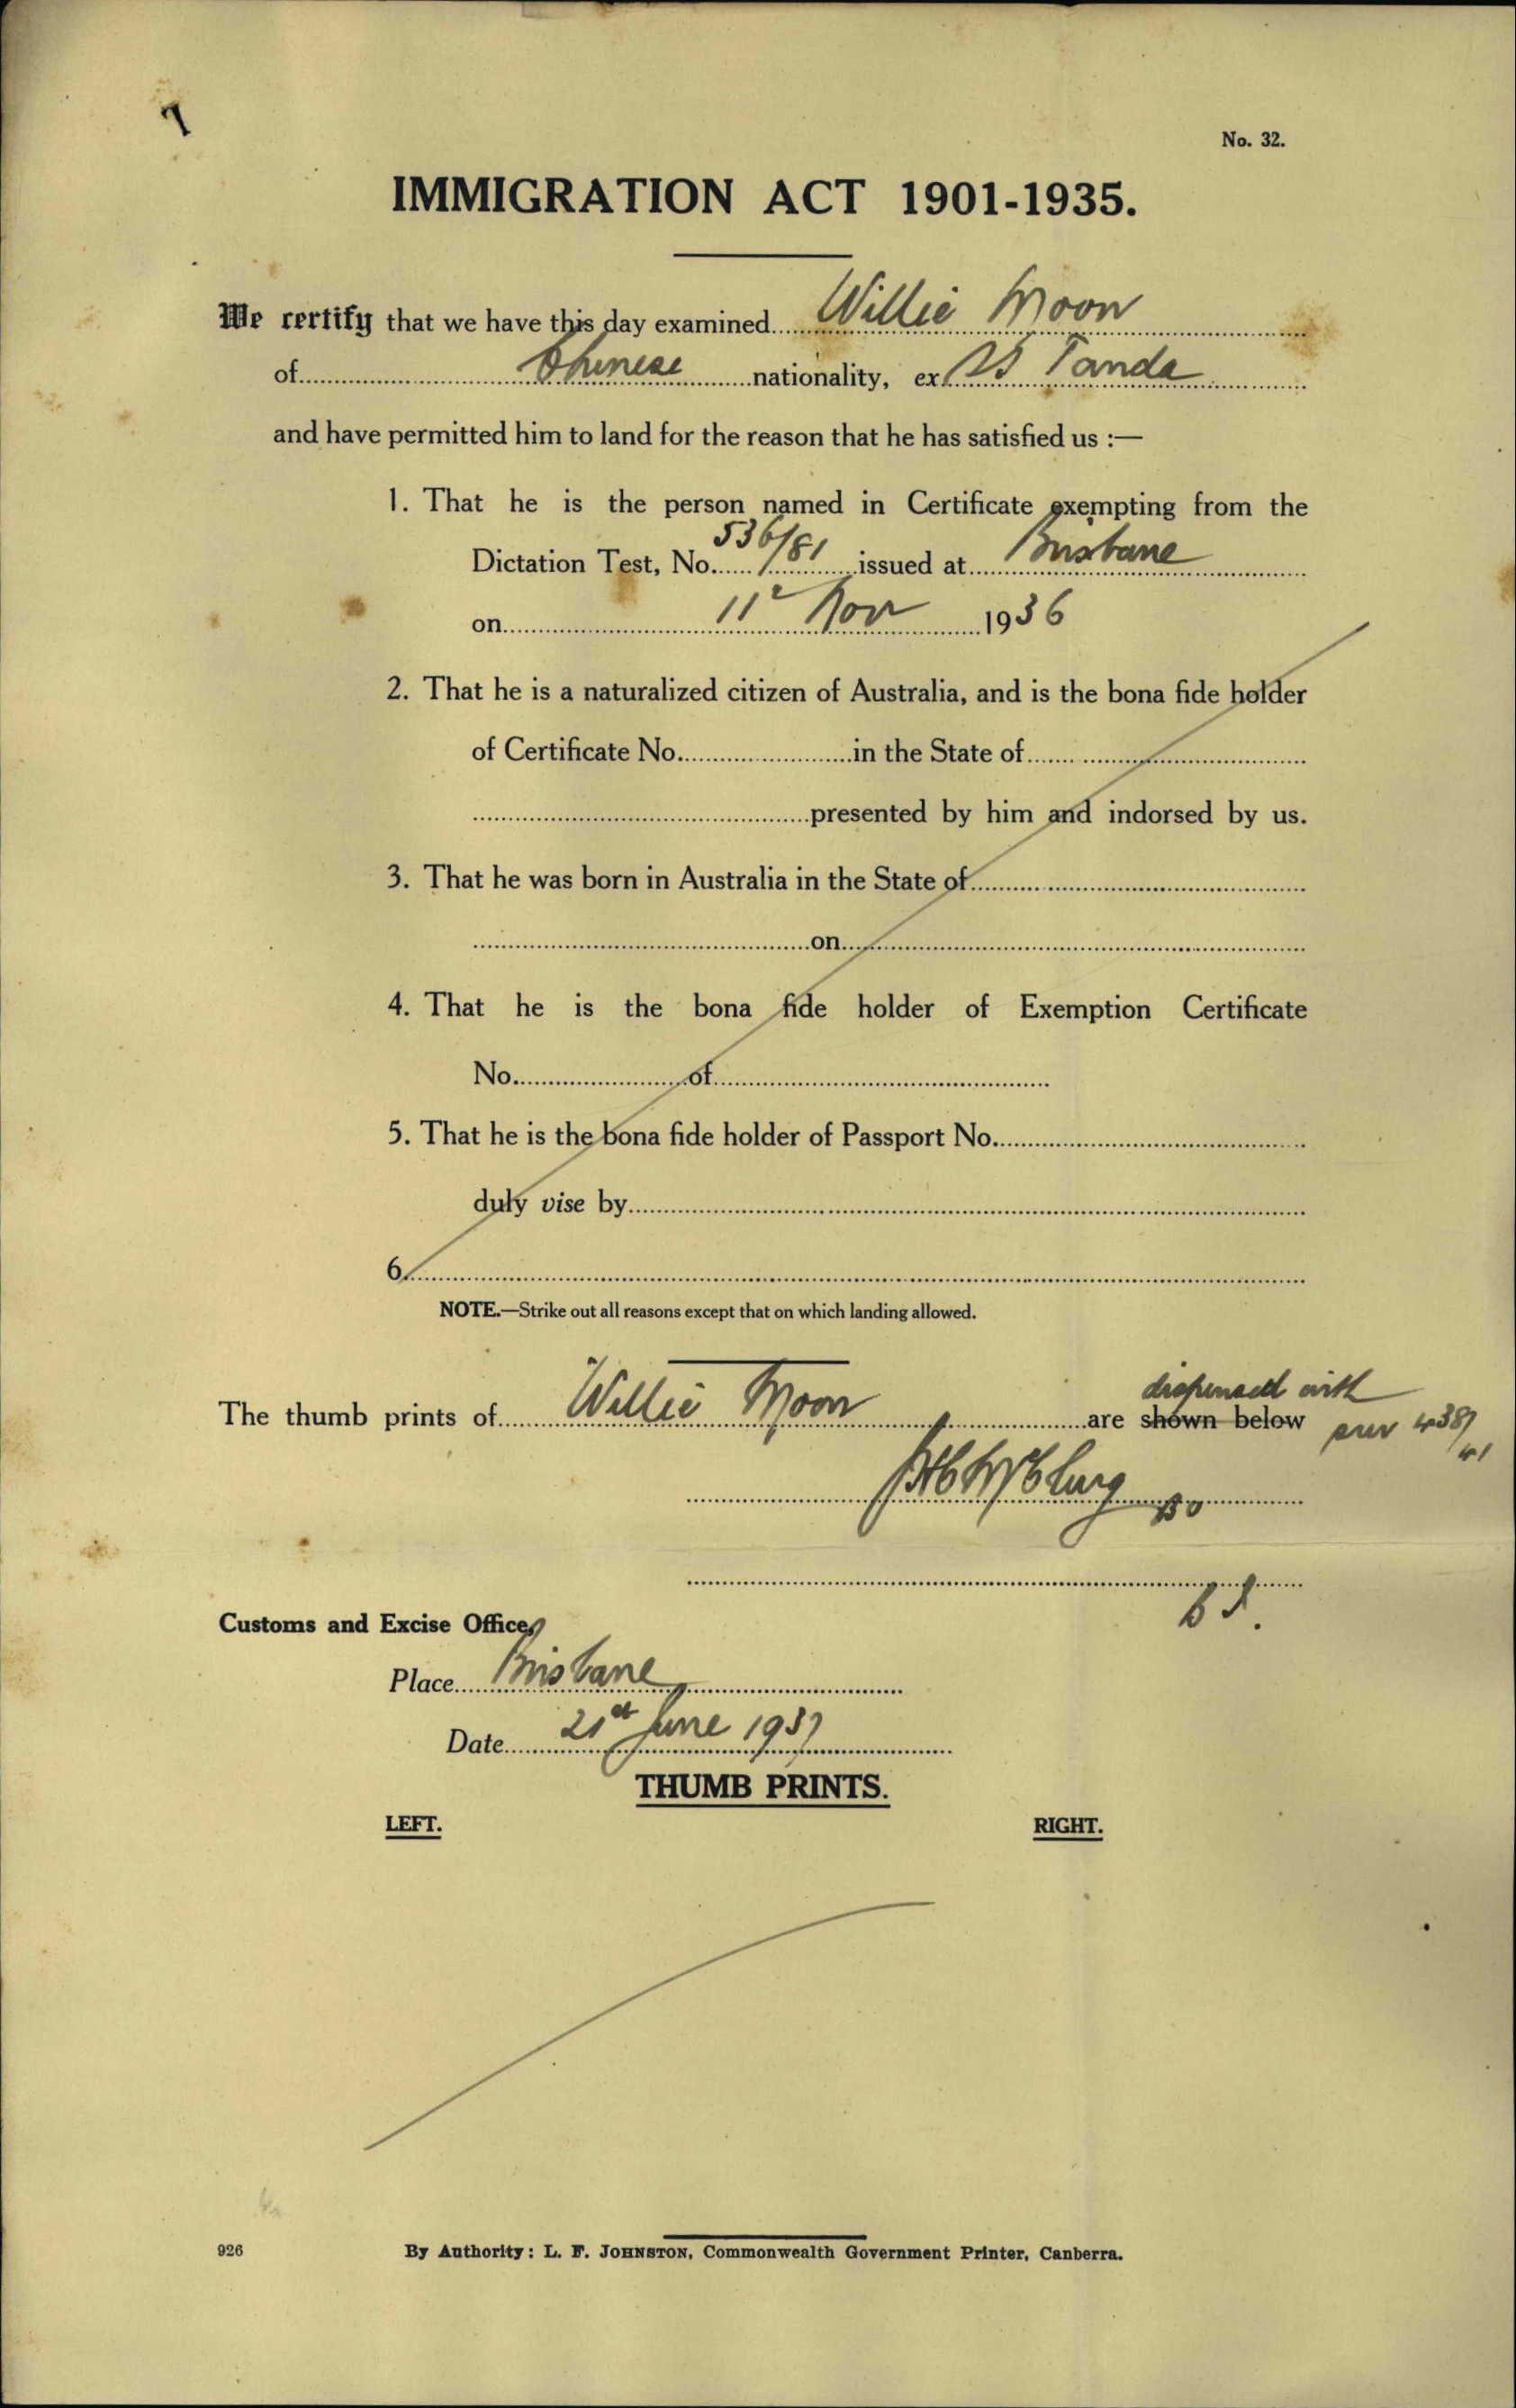 7
No. 32.
IMMIGRATION ACT 1901-1935.
We certify that we have this day examined Willie Moon
of Chinese nationality, ex SS Tanda
and have permitted him to land for the reason that he has satisfied us :—
1. That he is the person named in Certificate exempting from the
Dictation Test, No. 536/81 issued at Brisbane
on 11th Nov 1936
2. That he is a naturalized citizen of Australia, and is the bona fide holder
of Certificate No. in the State of
presented by him and indorsed by us.
3. That he was born in Australia in the State of
on
4. That he is the bona fide holder of Exemption Certificate
No. of
5. That he is the bona fide holder of Passport No.
duly vise by
6.
NOTE.—Strike out all reasons except that on which landing allowed.
dispensed with
The thumb prints of Willie Moon are shown below
Customs and Excise Office,
Place Brisbane
Date 21st June 1937
THUMB PRINTS.
LEFT. RIGHT.
926 By Authority: L. F. JOHNSTON, Commonwealth Government Printer, Canberra.